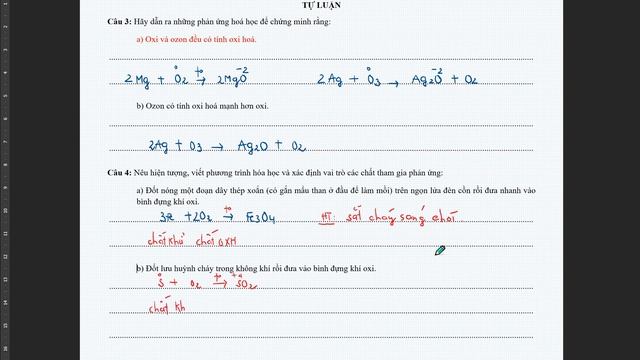 TỰ LUẬN
Câu 3: Hãy dẫn ra những phản ứng hoá học để chứng minh rằng:
a) Oxi và ozon đều có tính oxi hoá.
2Mg + O₂⁰ →t° 2MgO⁻² 2Ag + O₃⁰ → Ag₂O⁻² + O₂
b) Ozon có tính oxi hoá mạnh hơn oxi.
2Ag + O₃ → Ag₂O + O₂
Câu 4: Nêu hiện tượng, viết phương trình hóa học và xác định vai trò các chất tham gia phản ứng:
a) Đốt nóng một đoạn dây thép xoắn (có gắn mẩu than ở đầu để làm mồi) trên ngọn lửa đèn cồn rồi đưa nhanh vào
bình đựng khí oxi.
3Fe + 2O₂ →t° Fe₃O₄ HT: sắt cháy sáng chói
chất khử chất OXH
b) Đốt lưu huỳnh cháy trong không khí rồi đưa vào bình đựng khí oxi.
S⁰ + O₂ →t° S⁺⁴O₂
chất kh